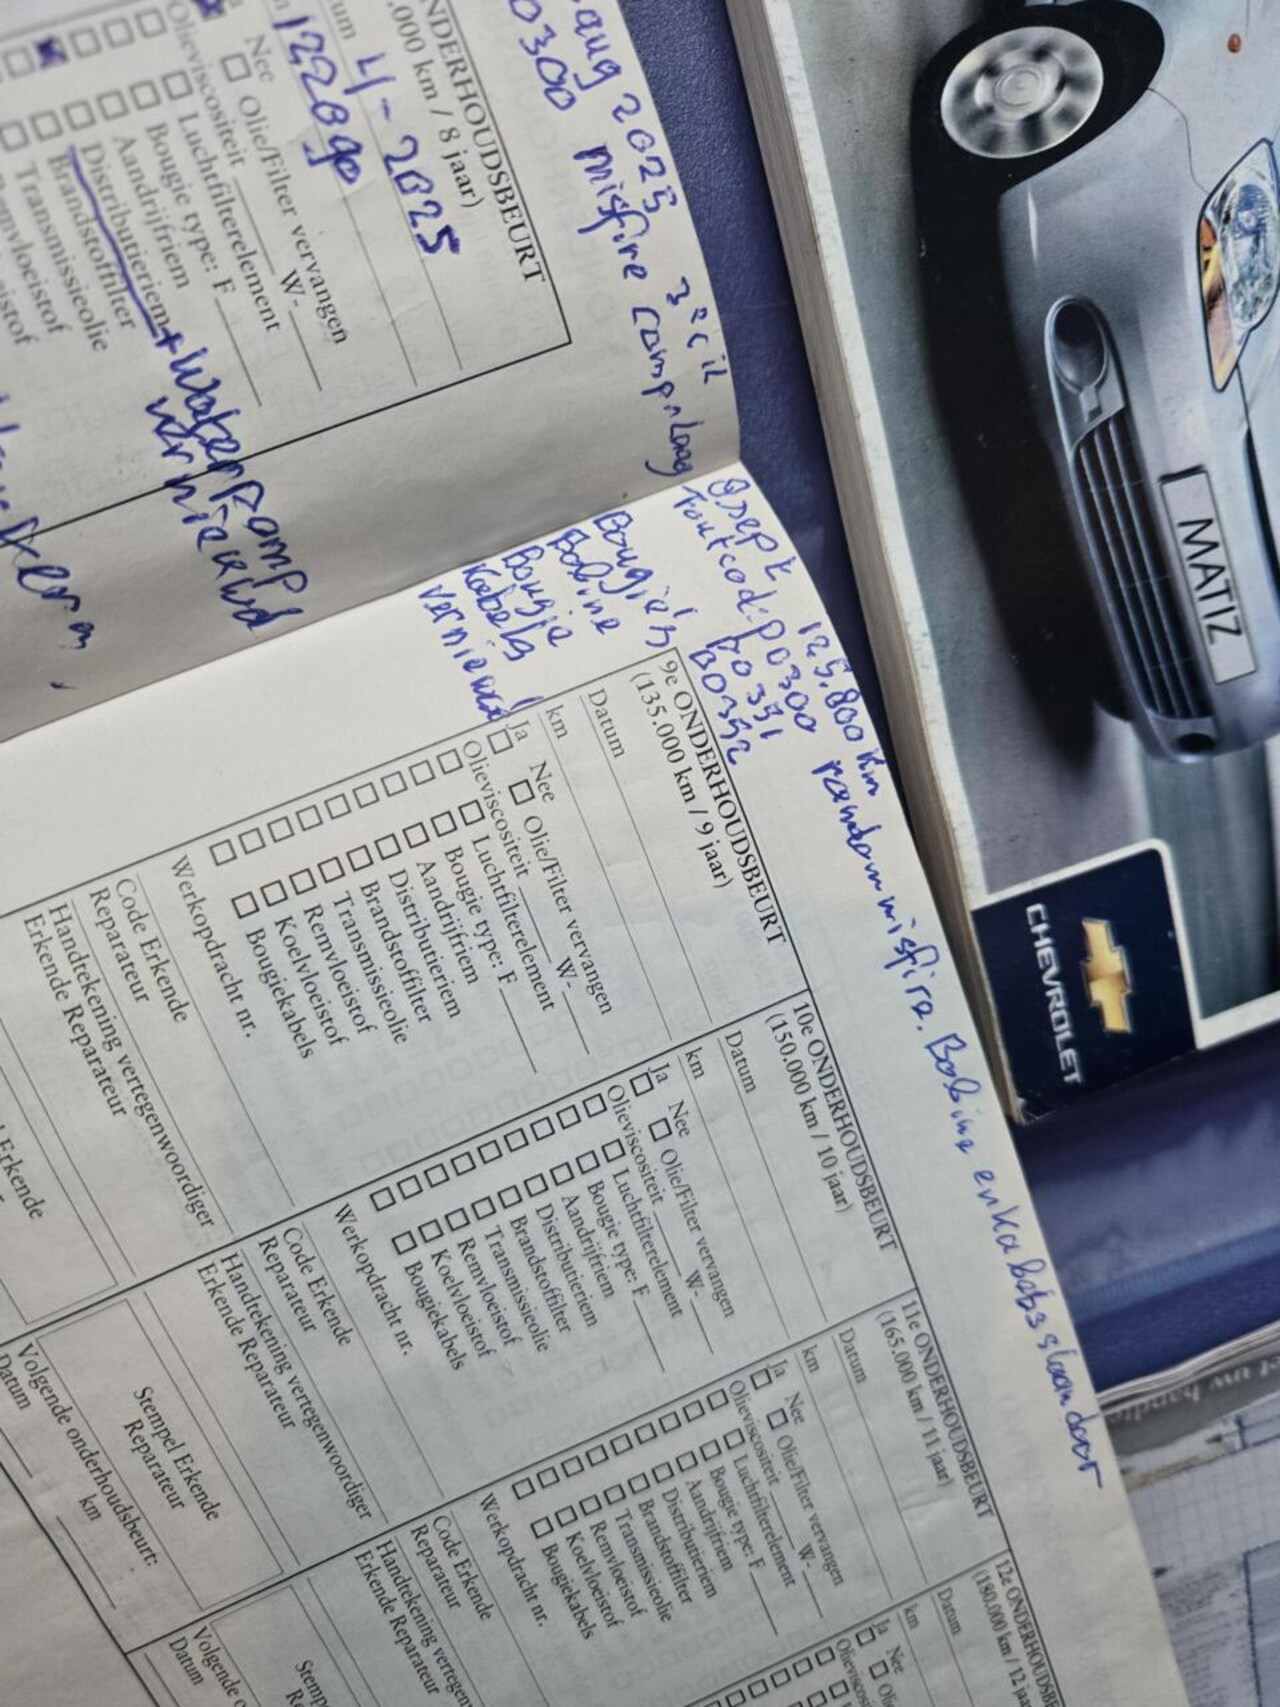 aug 2025 3e cil
0300 misfire comp. laag
ONDERHOUDSBEURT
.000 km / 8 jaar)
4 - 2025
Nee Olie/Filter vervangen
Olieviscositeit W-
Luchtfilterelement
Bougie type: F
Aandrijfriem
Distributieriem + Waterpomp
vernieuwd
Brandstoffilter
Transmissieolie
Sept 125.800 km
foutcode P0300 random misfire. Bobine en kabels slaan door
P0351
P0352
Bougie's
Bobine
Bougie
Kabels
vernieuwd
9e ONDERHOUDSBEURT
(135.000 km / 9 jaar)
Datum
km
Ja Nee Olie/Filter vervangen
Olieviscositeit W-
Luchtfilterelement
Bougie type: F
Aandrijfriem
Distributieriem
Brandstoffilter
Transmissieolie
Remvloeistof
Koelvloeistof
Bougiekabels
Werkopdracht nr.
Code Erkende
Reparateur
Handtekening vertegenwoordiger
Erkende Reparateur
10e ONDERHOUDSBEURT
(150.000 km / 10 jaar)
Datum
km
Ja Nee Olie/Filter vervangen
Olieviscositeit W-
Luchtfilterelement
Bougie type: F
Aandrijfriem
Distributieriem
Brandstoffilter
Transmissieolie
Remvloeistof
Koelvloeistof
Bougiekabels
Werkopdracht nr.
Code Erkende
Reparateur
Handtekening vertegenwoordiger
Erkende Reparateur
Stempel Erkende
Reparateur
Volgende onderhoudsbeurt:
Datum km
11e ONDERHOUDSBEURT
(165.000 km / 11 jaar)
Datum
km
Ja Nee Olie/Filter vervangen
Olieviscositeit W-
Luchtfilterelement
Bougie type: F
Aandrijfriem
Distributieriem
Brandstoffilter
Transmissieolie
Remvloeistof
Koelvloeistof
Bougiekabels
Werkopdracht nr.
Code Erkende
Reparateur
Handtekening vertegen
Erkende Reparateur
Volgende
Datum
12e ONDERHOUDSBE
(180.000 km / 12 jaa
Datum
km
Ja Nee
Olieviscositeit
MATIZ
CHEVROLET